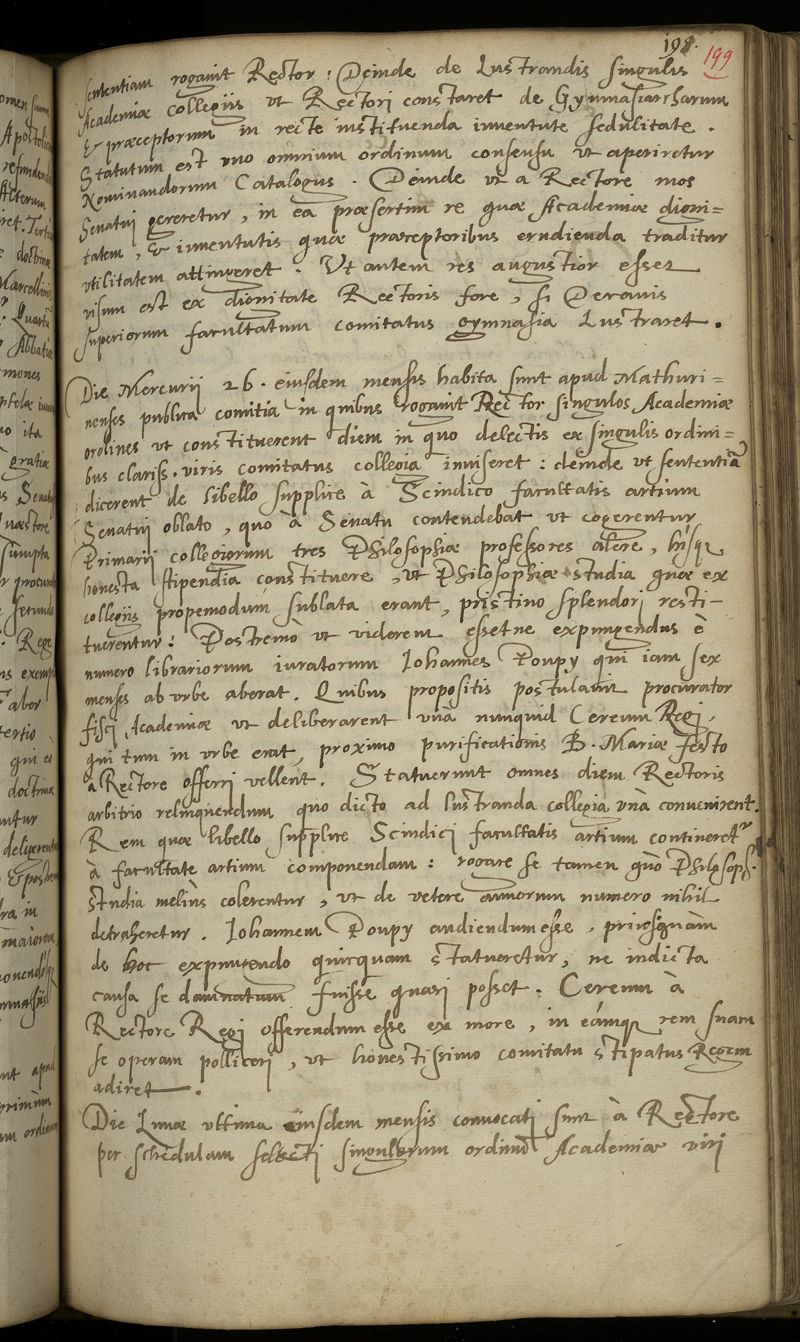 198. 199
sententiam rogavit Rector: Deinde de Lustrandis singulis
Academiæ collegiis ut Rectori constaret de Gymnasiarcharum
& præceptorum in recte instituenda iuventute sedulitate.
Statutum est uno omnium ordinum consensu ut aperiretur
Nominandorum Catalogus. Deinde ut a Rectore mos
Senatui gereretur, in ea præsertim re quæ Academiæ digni=
tatem, & iuventutis quæ præceptoribus erudienda traditur
utilitatem attingeret. Ut autem res augustior esset
visum est ex dignitate Rectoris fore, si Decanis
superiorum facultatum comitatus gymnasia Lustraret.
Die Mercurii 26. eiusdem mensis habita sunt apud Mathuri=
nenses publica comitia in quibus rogavit Rector singulos Academiæ
ordines ut constituerent diem in quo delectis ex singulis ordini=
bus clariss. viris comitatus collegia inviseret: deinde ut sententiã
dicerent de libello supplice à Scindico facultatis artium
Senatui oblato, quo à Senatu contendebat ut cogerentur
Primarii collegiorum tres Philosophiæ professores alere, hisq
honesta stipendia constituere, ut Philosophiæ studia quæ ex
collegiis propemodum sublata erant, pristino splendori resti-
tuerentur: Postremò ut viderent essetne expungendus è
numero librariorum iuratorum Iohannes Poupy qui iam sex
menses ab urbe aberat. Quibus propositis postulavit procurator
fisci Academiæ ut deliberarent una nunquid Cereum Regi,
qui tum in urbe erat, proximo purificationis B. Mariæ festo
a Rectore offerri vellent. Statuerunt omnes diem Rectoris
arbitrio relinquendum quo dicto ad lustranda collegia unà convenirent.
Rem quæ libello supplice Scindici facultatis artium contineret
à facultate artium componendam: rogare se tamen quò Philosoph.
studia meliùs colerentur, ut de vetere annorum numero nihil
detraheretur. Iohannem Poupy audiendum esse, priusquàm
de hoc expungendo quicquam statueretur, ne indicta
causa se damnatum fuisse queri posset. Cereum à
Rectore Regi offerendum esse ex more, in eamq rem suam
se operam polliceri, ut honestissimo comitatu stipatus Regem
adiret.
Die Lunæ ultima eiusdem mensis convocati sunt à Rectore
per schedulam selecti singulorum ordinum Academiæ viri